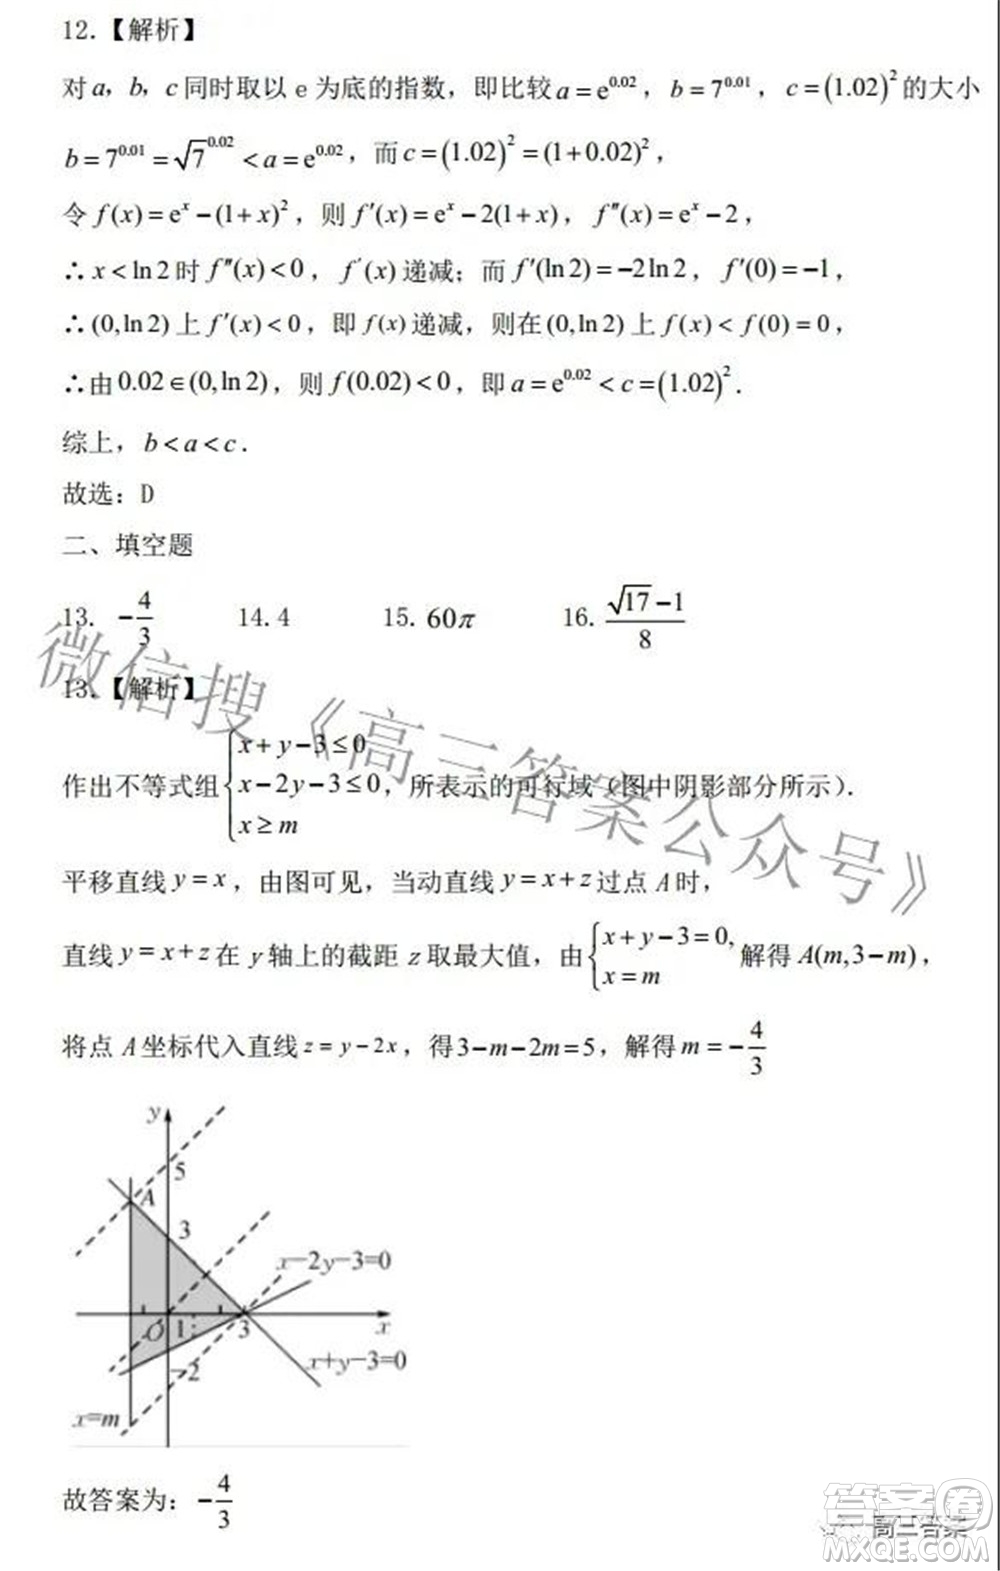 12.【解析】
对a，b，c同时取以e为底的指数，即比较a=e^{0.02}，b=7^{0.01}，c=(1.02)^2的大小
b=7^{0.01}=√7^{0.02}<a=e^{0.02}，而c=(1.02)^2=(1+0.02)^2，
令f(x)=e^x-(1+x)^2，则f′(x)=e^x-2(1+x)，f″(x)=e^x-2，
∴x<ln2时f″(x)<0，f′(x)递减；而f′(ln2)=-2ln2，f′(0)=-1，
∴(0,ln2)上f′(x)<0，即f(x)递减，则在(0,ln2)上f(x)<f(0)=0，
∴由0.02∈(0,ln2)，则f(0.02)<0，即a=e^{0.02}<c=(1.02)^2.
综上，b<a<c.
故选：D
二、填空题
13. -4/3 14.4 15. 60π 16. (√17-1)/8
13.【解析】
作出不等式组{x+y-3≤0 x-2y-3≤0 x≥m，所表示的可行域（图中阴影部分所示）.
平移直线y=x，由图可见，当动直线y=x+z过点A时，
直线y=x+z在y轴上的截距z取最大值，由{x+y-3=0, x=m 解得A(m,3-m)，
将点A坐标代入直线z=y-2x，得3-m-2m=5，解得m=-4/3
y
5
A
3
x-2y-3=0
O 1 3 x
-2
x+y-3=0
x=m
故答案为：-4/3
微信搜《高三答案公众号》
答案卷
高三答案
MXQE.COM